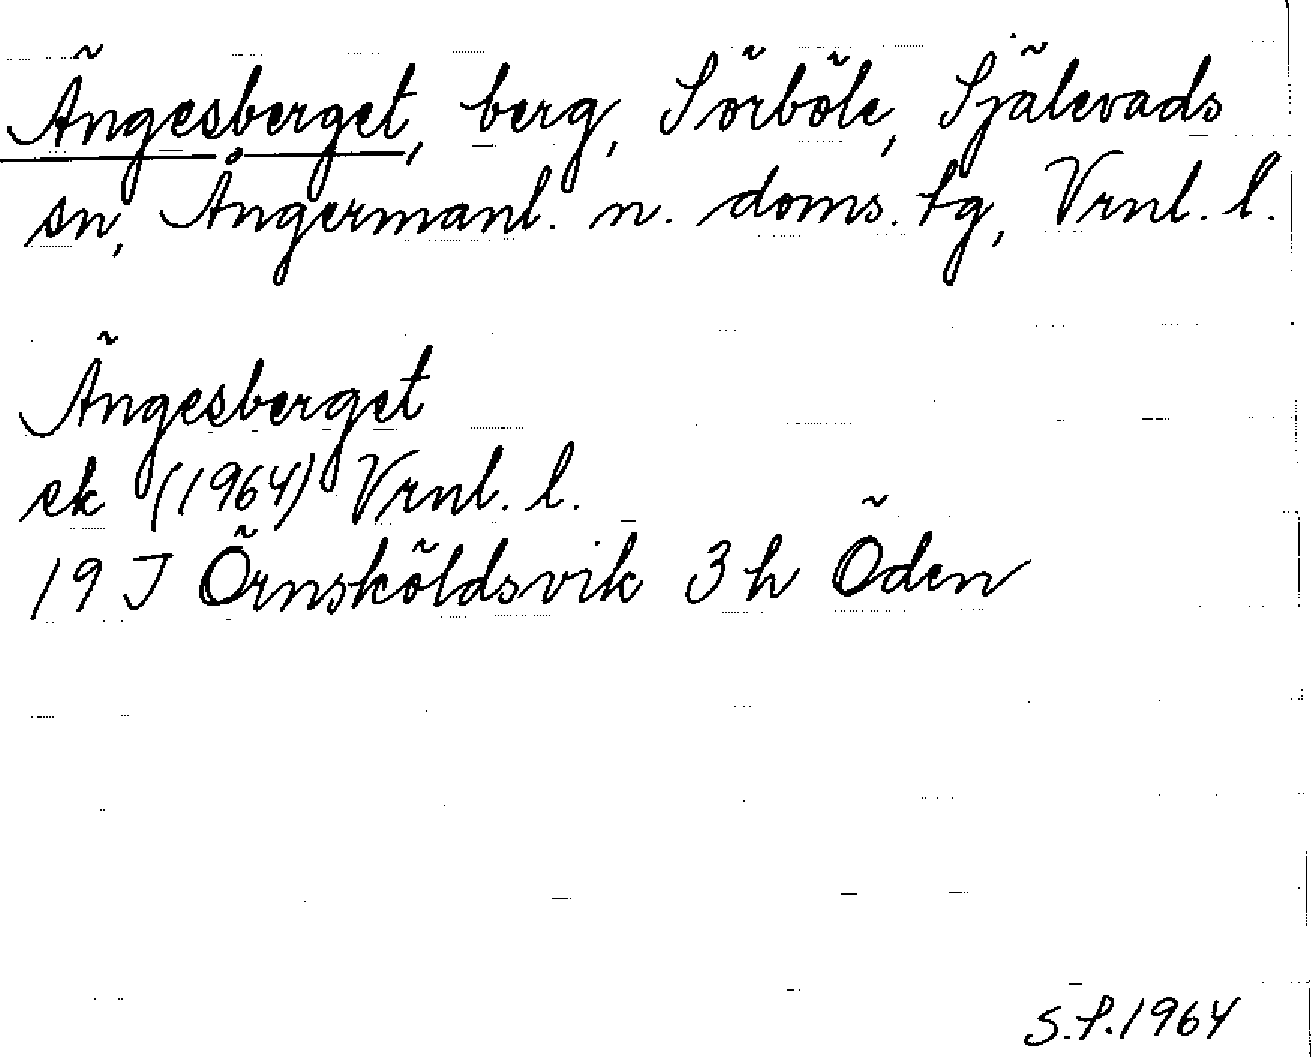 Ängesberget, berg, Sörböle, Själevads
sn, Ångermanl. n. doms. tg, Vrnl. l.
Ängesberget
ek (1964) Vrnl. l.
19 J Örnsköldsvik 3 h Öden
S.S. 1964